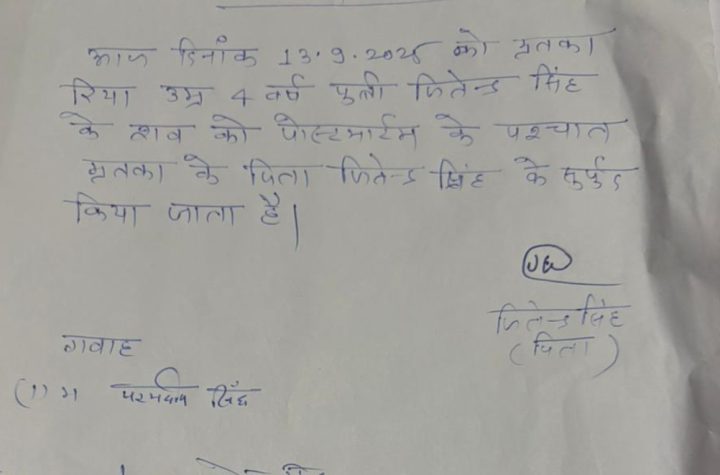 आज दिनांक 13.9.2025 को मृतका
रिया उम्र 4 वर्ष पुत्री जितेन्द्र सिंह
के शव को पोस्टमार्टम के पश्चात
मृतका के पिता जितेन्द्र सिंह के सुर्पुद
किया जाता है।
जितेन्द्र सिंह
(पिता)
गवाह
(1) सिंह